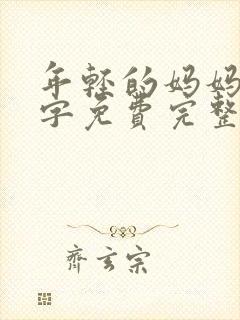 年轻的妈妈
字免费完整
齐玄宗